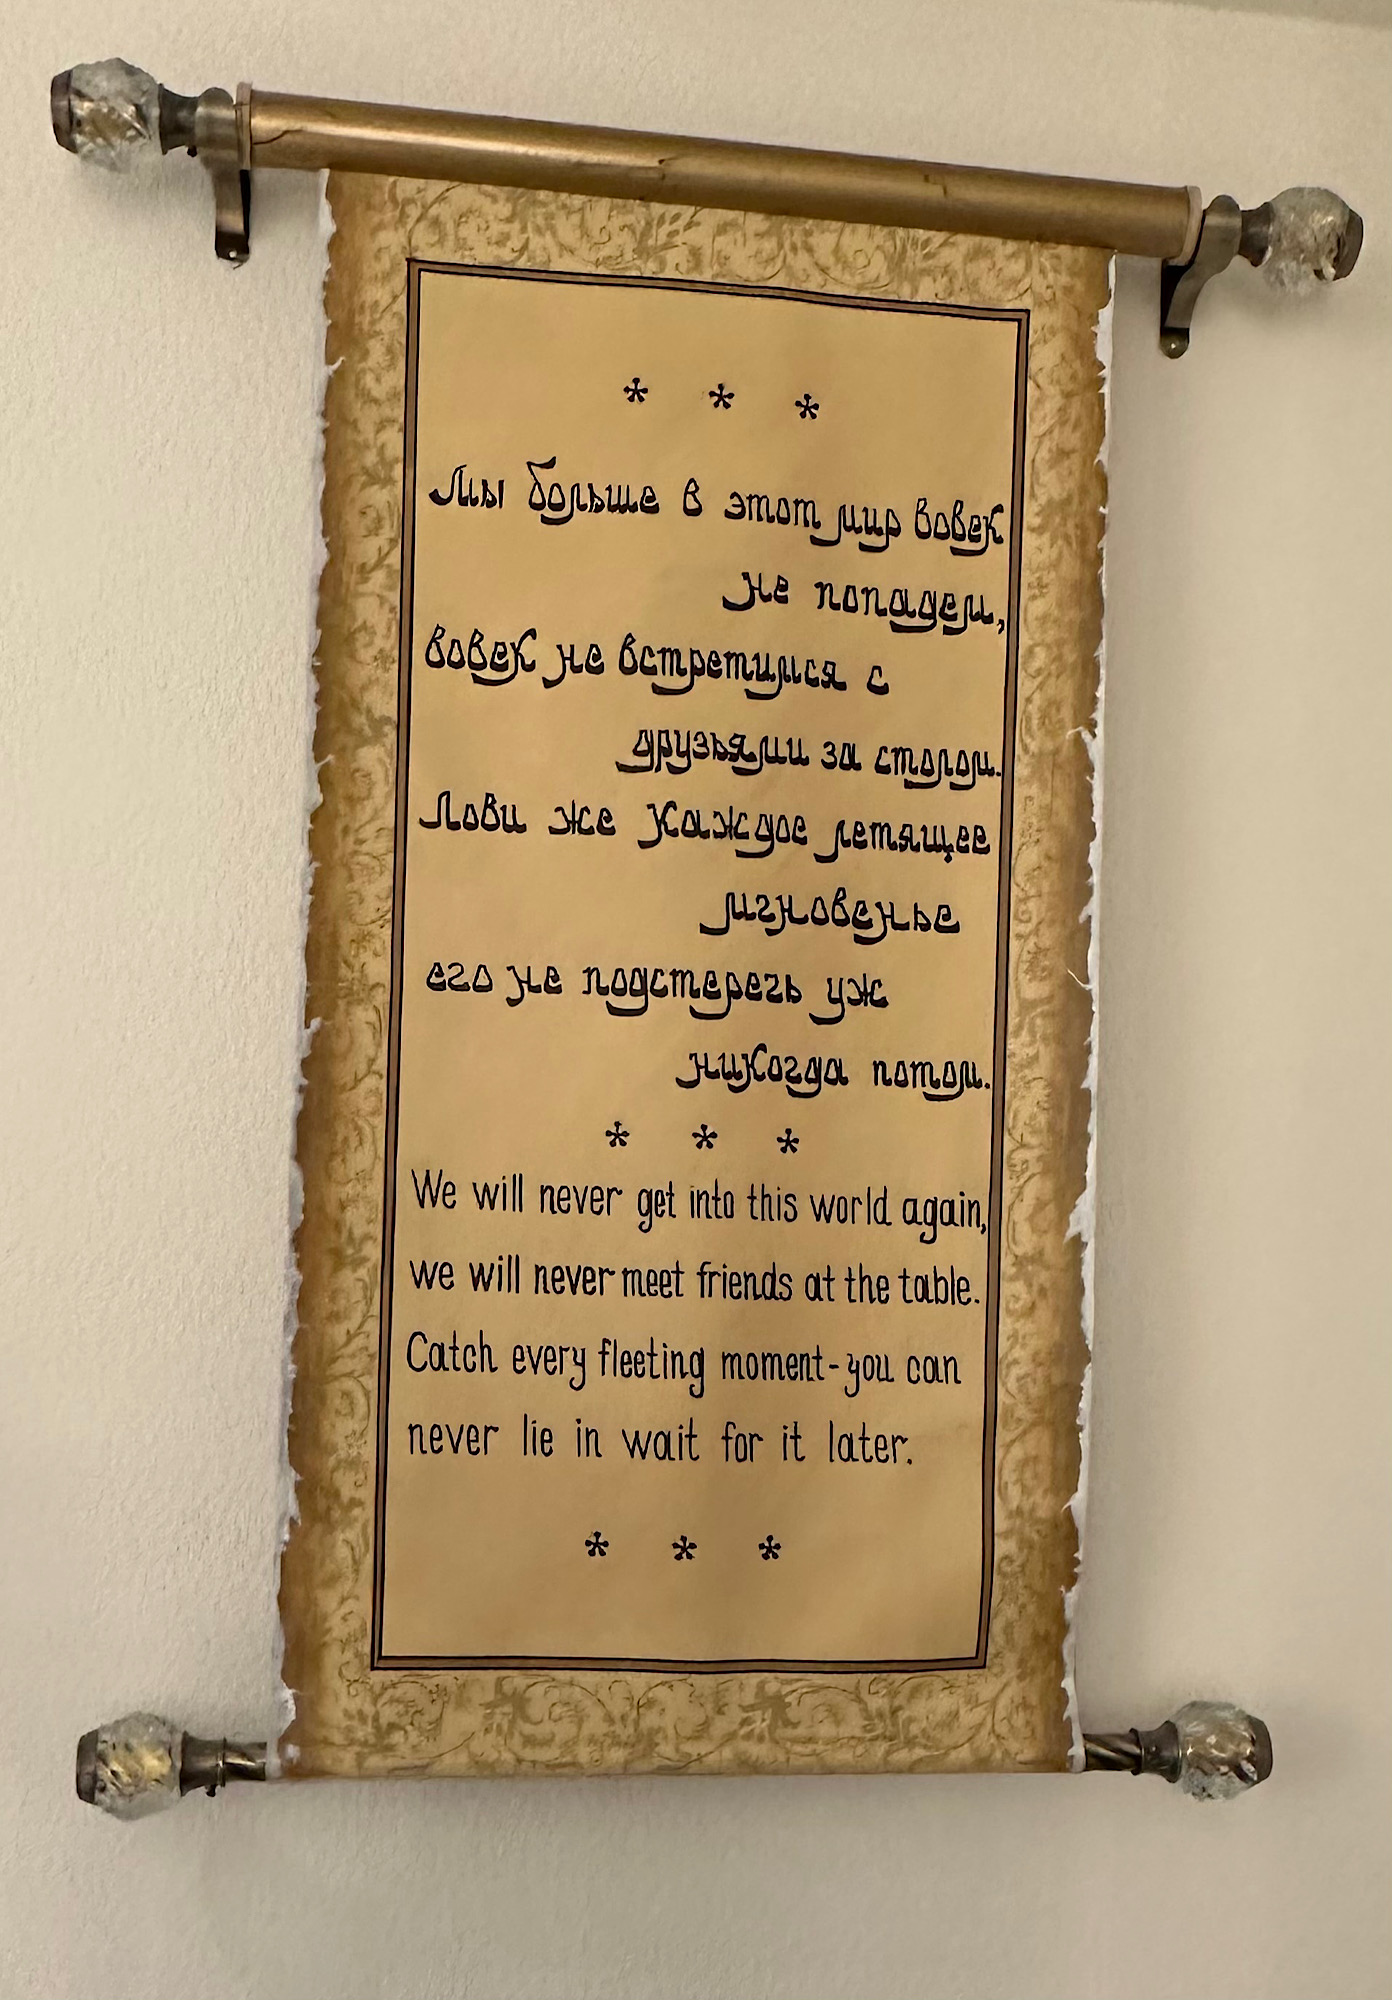 * * *
Мы больше в этот мир вовек
не попадем,
вовек не встретимся с
друзьями за столом.
Лови же каждое летящее
мгновенье
его не подстеречь уж
никогда потом.
* * *
We will never get into this world again,
we will never meet friends at the table.
Catch every fleeting moment-you can
never lie in wait for it later.
* * *